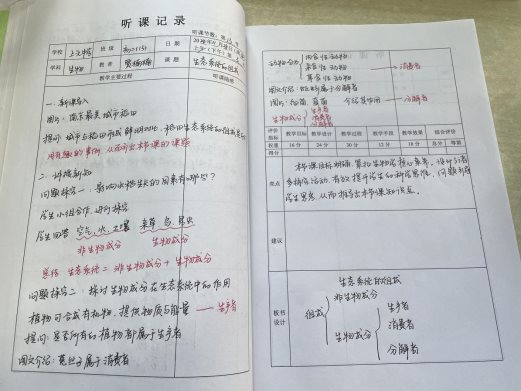 听课记录
听课节数：第 节
学校
班级
日期
学科 生物
教者
课题 生态系统的组成
教学主要过程
听课随感
一、新课导入
图片：南京最美城市稻田
提问：城市与稻田形成鲜明对比，稻田生态系统的组成是
用有趣的事例，从而引出本节课的课题
二、讲授新知
问题探究一：影响水稻生长的因素有哪些？
学生小组合作，进行探究
学生回答 空气、水、土壤 杂草、鸟、昆虫
非生物成分 生物成分
总结 生态系统 = 非生物成分 + 生物成分
问题探究二：探讨生物成分在生态系统中的作用
植物可合成有机物，提供物质与能量 —— 生产者
提问：是否所有的植物都属于生产者
图文介绍：菟丝子属于消费者
肉食性动物
杂食性动物
草食性动物
消费者
图文介绍：蚯蚓属于分解者
图片：细菌 真菌 介绍其作用 —— 分解者
生物成分
生产者
消费者
分解者
评价指标 教学目标 教学设计 教学过程 教学手段 教学效果 综合评价
权重 16分 24分 30分 12分 18分 总分 等第
得分
亮点
本节课目标明确，紧扣生物学核心素养，设计了
多样化活动，有效提升学生的科学思维，问题引导
学生思考，从而推导出本节课知识点。
建议
板书设计
生态系统的组成
组成
非生物成分
生物成分
生产者
消费者
分解者